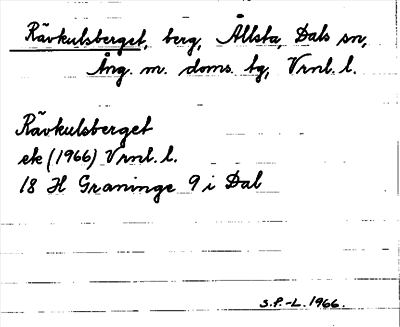 Rävkulsberget, berg, Ållsta, Dals sn,
Ång. m. doms. tg, Vrnl. l.
Rävkulsberget
ek (1966) Vrnl. l.
18 H Graninge 9 i Dal
S.P.-L. 1966.